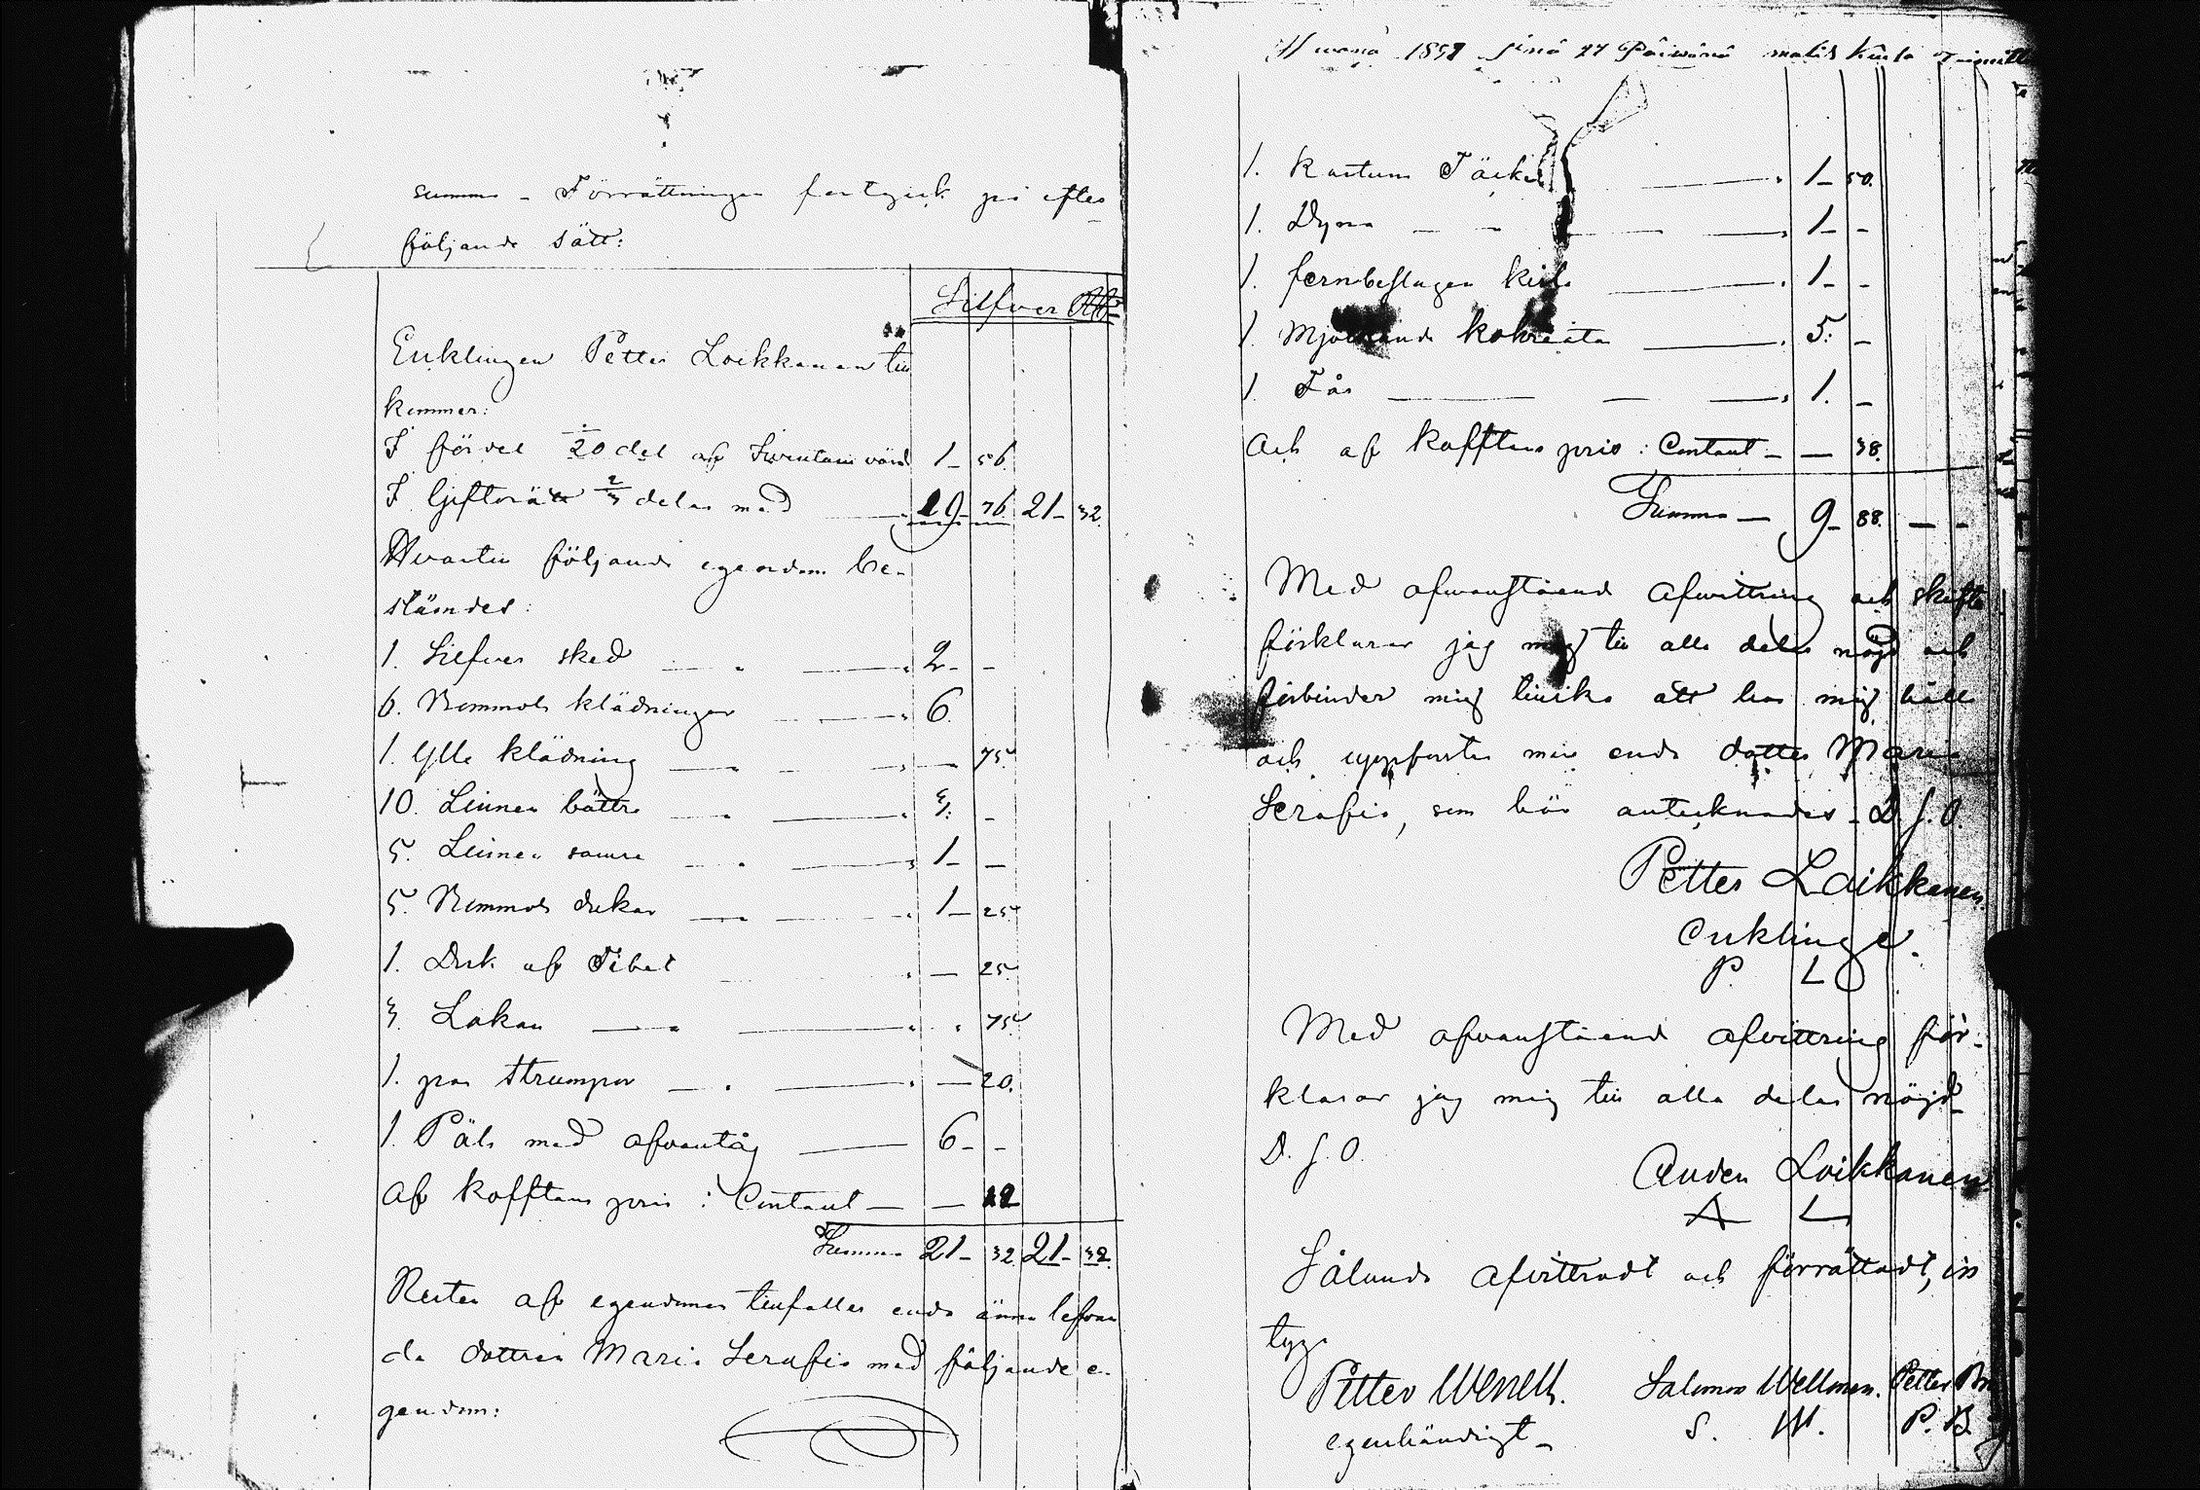 summa - Förrättningen fortgick på efter
följande sätt:
Silfver
Enklingen Petter Loikkanen till
kommer:
I fördel 20 del af
I Giftorätt 2/3 delar med 19- 76. 21- 32.
Hvartill följande egendom be-
stämdes:
1. Silfver sked 2- -
6. Bommols klädningar 6.
1. Ylle klädning - 75.
10. Linnen bättre 3. -
5. Linnen sämre 1- -
5. Bommols dukar 1- 25.
1. Duk af Tibet - 25.
3. Lakan 75.
1. par strumpor - 20.
1. Päls med 6- -
Af kofftans pris: Contant - - 12
Summa 21- 32. 21- 32.
Resten af egendomen tillfaller enda ännu lefvan
de dottren Maria Serafia med följande e-
gendom:
1857 27 Päiwänä
1. Kattuns Täcke 1- 50.
1. Dyna 1- -
1. Jernbeslagen kista 1- -
1. 5. -
1. Får 1. -
Och af kofftans pris: Contant - - 38.
Summa - 9- 88. - -
Med ofvanstående Afvittring och skifte
förklarar jag mig till alla delar nöjd och
förbinder mig tillika att hos mig hålla
och uppfostra min enda dotter Maria
Serafia, som bör antecknades - D. S. O.
Petter Loikkanen.
Enkling
P. L
Med ofvanstående afvittring för-
klarar jag mig till alla delar nöjd-
D. S. O.
Anders Loikkanen
A L
Sålunda afvittradt och förrättadt, in
tyga
Petter Salomon Wellman. Petter
egenhändigt - S. W. P. B.